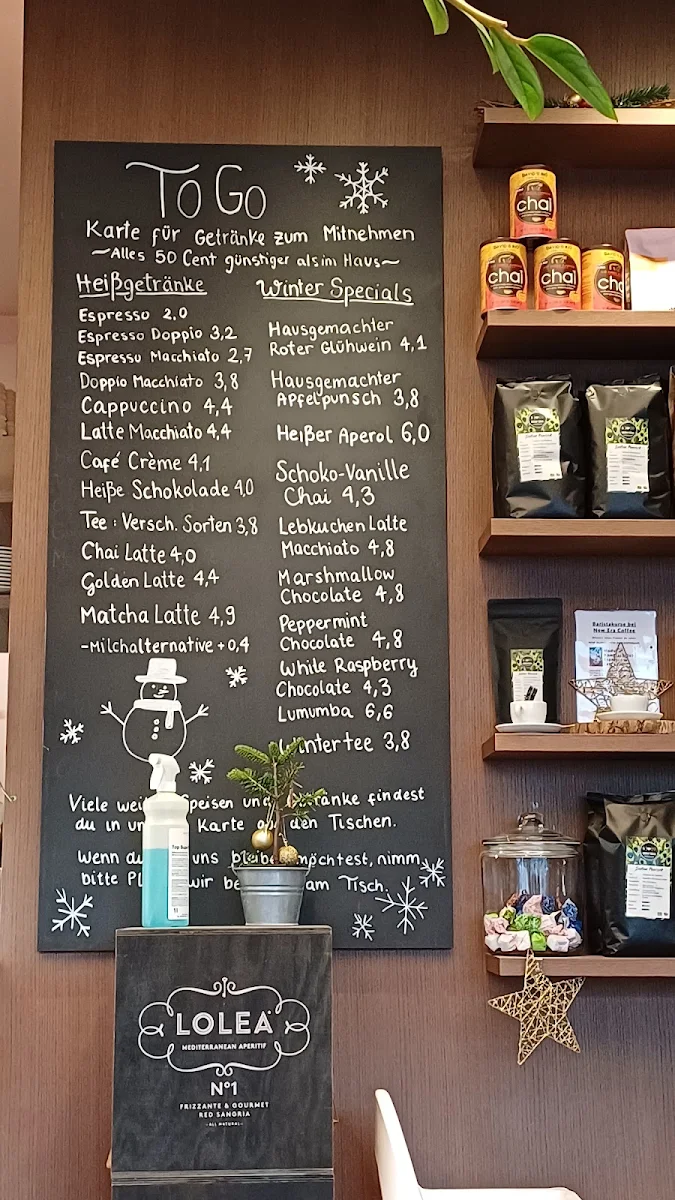 To Go
Karte für Getränke zum Mitnehmen
~Alles 50 Cent günstiger als im Haus~
Heißgetränke
Espresso 2,0
Espresso Doppio 3,2
Espresso Macchiato 2,7
Doppio Macchiato 3,8
Cappuccino 4,4
Latte Macchiato 4,4
Café Crème 4,1
Heiße Schokolade 4,0
Tee: Versch. Sorten 3,8
Chai Latte 4,0
Golden Latte 4,4
Matcha Latte 4,9
-Milchalternative +0,4
Winter Specials
Hausgemachter
Roter Glühwein 4,1
Hausgemachter
Apfelpunsch 3,8
Heißer Aperol 6,0
Schoko-Vanille
Chai 4,3
Lebkuchen Latte
Macchiato 4,8
Marshmallow
Chocolate 4,8
Peppermint
Chocolate 4,8
White Raspberry
Chocolate 4,3
Lumumba 6,6
Wintertee 3,8
Viele Speisen und findest
du in Karte den Tischen.
Wenn du uns möchtest, nimm
bitte wir am Tisch.
LOLEA
MEDITERRANEAN APERITIF
Nº1
FRIZZANTE & GOURMET
RED SANGRIA
-ALL NATURAL-
chai
chai
chai
Baristakurse bei
New Era Coffee